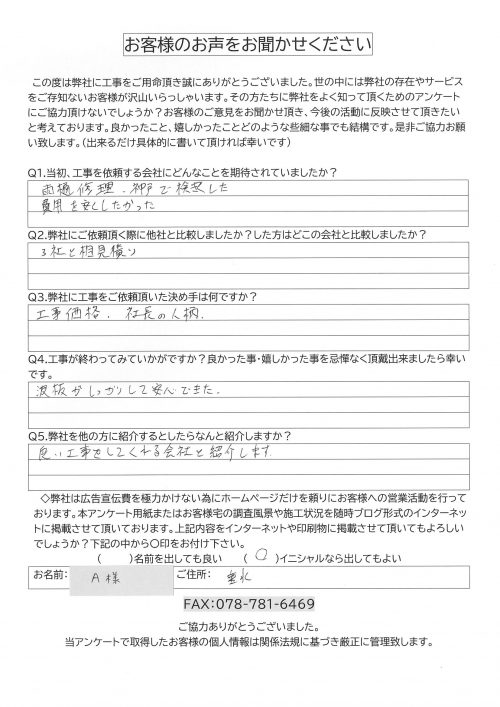 お客様のお声をお聞かせください
この度は弊社に工事をご用命頂き誠にありがとうございました。世の中には弊社の存在やサービス
をご存知ないお客様が沢山いらっしゃいます。その方たちに弊社をよく知って頂くためのアンケート
にご協力頂けないでしょうか？お客様のご意見をお聞かせ頂き、今後の活動に反映させて頂きたい
と考えております。良かったこと、嬉しかったことどのような些細な事でも結構です。是非ご協力お願
い致します。（出来るだけ具体的に書いて頂ければ幸いです）
Q1.当初、工事を依頼する会社にどんなことを期待されていましたか？
雨樋修理、ネットで検索した
費用を安くしたかった
Q2.弊社にご依頼頂く際に他社と比較しましたか？した方はどこの会社と比較しましたか？
3社と相見積り
Q3.弊社に工事をご依頼頂いた決め手は何ですか？
工事価格、社長の人柄、
Q4.工事が終わってみていかがですか？良かった事・嬉しかった事を忌憚なく頂戴出来ましたら幸い
です。
波板がしっかりして安心できた。
Q5.弊社を他の方に紹介するとしたらなんと紹介しますか？
良い工事をしてくれる会社と紹介します
◇弊社は広告宣伝費を極力かけない為にホームページだけを頼りにお客様への営業活動を行って
おります。本アンケート用紙またはお客様宅の調査風景や施工状況を随時ブログ形式のインターネッ
トに掲載させて頂いております。上記内容をインターネットや印刷物に掲載させて頂いてもよろしい
でしょうか？下記の中から〇印をお付け下さい。
（　　）名前を出しても良い　（ ○ ）イニシャルなら出してもよい
お名前： A様 ご住所： 垂水
FAX：078-781-6469
ご協力ありがとうございました。
当アンケートで取得したお客様の個人情報は関係法規に基づき厳正に管理致します。